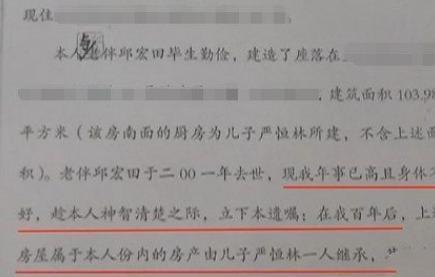 现住
本人老伴邱宏田毕生勤俭，建造了座落在
，建筑面积103.98
平方米（该房南面的厨房为儿子严恒林所建，不含上述面
积）。老伴邱宏田于二00一年去世，现我年事已高且身体不
好，趁本人神智清楚之际，立下本遗嘱：在我百年后，上
房屋属于本人份内的房产由儿子严恒林一人继承，